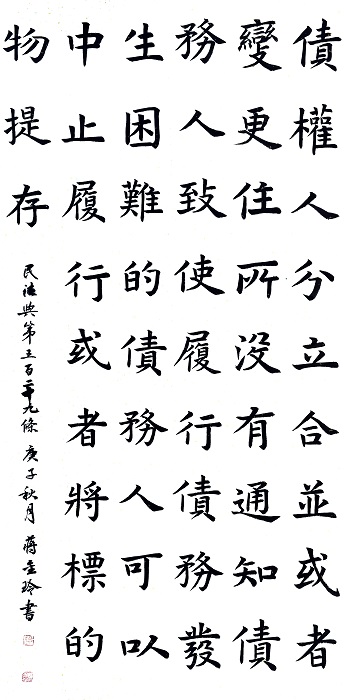 債權人分立合並或者
變更住所沒有通知債
務人致使履行債務發
生困難的債務人可以
中止履行或者將標的
物提存
民法典第五百二十九條 庚子秋月 蔣玲書